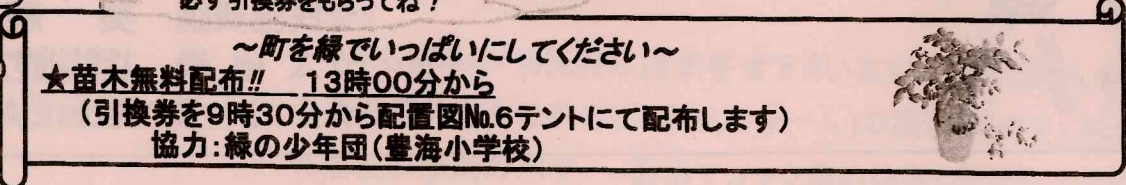 必ず引換券をもらってね!
～町を緑でいっぱいにしてください～
★苗木無料配布!! 13時00分から
(引換券を9時30分から配置図№6テントにて配布します)
協力:緑の少年団(豊海小学校)